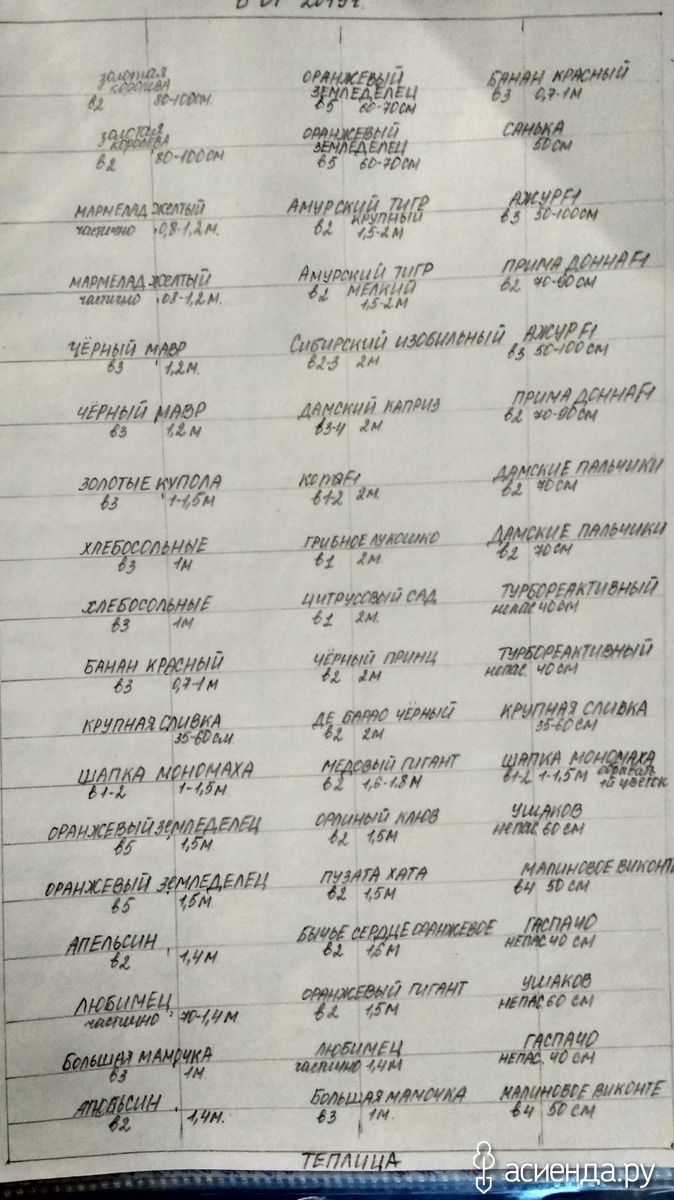 золотая королева
в2 80-100см.
ОРАНЖЕВЫЙ ЗЕМЛЕДЕЛЕЦ
в5 60-70см
БАНАН КРАСНЫЙ
в3 0,7-1м
золотая королева
в2 80-100см
ОРАНЖЕВЫЙ ЗЕМЛЕДЕЛЕЦ
в5 60-70см
САНЬКА
50см
МАРМЕЛАД ЖЕЛТЫЙ
частично 0,8-1,2м.
АМУРСКИЙ ТИГР
в2 КРУПНЫЙ
1,5-2м
АЖУР F1
в3 50-100см
МАРМЕЛАД ЖЕЛТЫЙ
частично 08-1,2м.
АМУРСКИЙ ТИГР
в2 МЕЛКИЙ
1,5-2м
ПРИМА ДОННА F1
в2 70-90см
ЧЁРНЫЙ МАВР
в3 1,2м.
СИБИРСКИЙ ИЗОБИЛЬНЫЙ
в2-3 2м
АЖУР F1
в3 50-100см
ЧЁРНЫЙ МАВР
в3 1,2м
ДАМСКИЙ КАПРИЗ
в3-4 2м
ПРИМА ДОННА F1
в2 70-90см
ЗОЛОТЫЕ КУПОЛА
в3 1-1,5м
в1-2 2м.
ДАМСКИЕ ПАЛЬЧИКИ
в2 70см
ХЛЕБОСОЛЬНЫЕ
в3 1м
ГРИБНОЕ ЛУКОШКО
в1 2м.
ДАМСКИЕ ПАЛЬЧИКИ
в2 70см
ХЛЕБОСОЛЬНЫЕ
в3 1м
ЦИТРУСОВЫЙ САД
в1 2м.
ТУРБОРЕАКТИВНЫЙ
непас 40см
БАНАН КРАСНЫЙ
в3 0,7-1м
ЧЁРНЫЙ ПРИНЦ
в2 2м
ТУРБОРЕАКТИВНЫЙ
непас. 40см
КРУПНАЯ СЛИВКА
35-60см
ДЕ БАРАО ЧЁРНЫЙ
в2 2м
КРУПНАЯ СЛИВКА
35-60см
ШАПКА МОНОМАХА
в1-2 1-1,5м
МЕДОВЫЙ ГИГАНТ
в2 1,6-1.8м
ШАПКА МОНОМАХА
в1-2 1-1,5м 1й цветок
ОРАНЖЕВЫЙ ЗЕМЛЕДЕЛЕЦ
в5 1,5м
ОРЛИНЫЙ КЛЮВ
в2 1,5м
УШАКОВ
непас 60см
ОРАНЖЕВЫЙ ЗЕМЛЕДЕЛЕЦ
в5 1,5м
ПУЗАТА ХАТА
в2 1,5м
МАЛИНОВОЕ ВИКОНТЕ
в4 50см
АПЕЛЬСИН
в2 1,4м
БЫЧЬЕ СЕРДЦЕ ОРАНЖЕВОЕ
в2 1,6м
ГАСПАЧО
НЕПАС 40см
ЛЮБИМЕЦ
частично 70-1,4м.
ОРАНЖЕВЫЙ ГИГАНТ
в2 1,5м
УШАКОВ
НЕПАС 60см
БОЛЬШАЯ МАМОЧКА
в3 1м
ЛЮБИМЕЦ
частично 1,4м
ГАСПАЧО
НЕПАС. 40см
в2 1,4м.
БОЛЬШАЯ МАМОЧКА
в3 1м.
МАЛИНОВОЕ ВИКОНТЕ
в4 50см
ТЕПЛИЦА
асиенда.ру